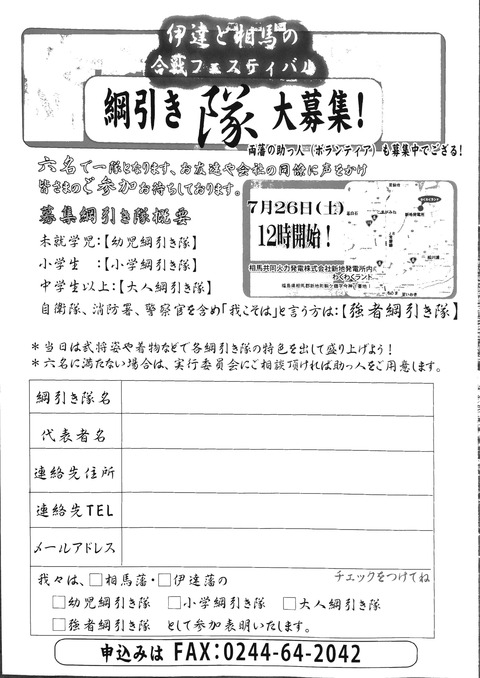 伊達と相馬の
合戦フェスティバル
綱引き隊大募集!
両藩の助っ人(ボランティア)も募集中でござる!
六名で一隊となります、お友達や会社の同僚に声をかけ
皆さまのご参加お待ちしております。
募集綱引き隊概要
未就学児:【幼児綱引き隊】
小学生 :【小学綱引き隊】
中学生以上:【大人綱引き隊】
自衛隊、消防署、警察官を含め「我こそは」と言う方は:【強者綱引き隊】
7月26日(土)
12時開始!
相馬共同火力発電株式会社新地発電所内
わくわくランド
*当日は武将姿や着物などで各綱引き隊の特色を出して盛り上げよう!
*六名に満たない場合は、実行委員会にご相談頂ければ助っ人をご用意します。
綱引き隊名
代表者名
連絡先住所
連絡先TEL
メールアドレス
我々は、□相馬藩・□伊達藩の チェックをつけてね
□幼児綱引き隊 □小学綱引き隊 □大人綱引き隊
□強者綱引き隊 として参加表明いたします。
申込みは FAX:0244-64-2042